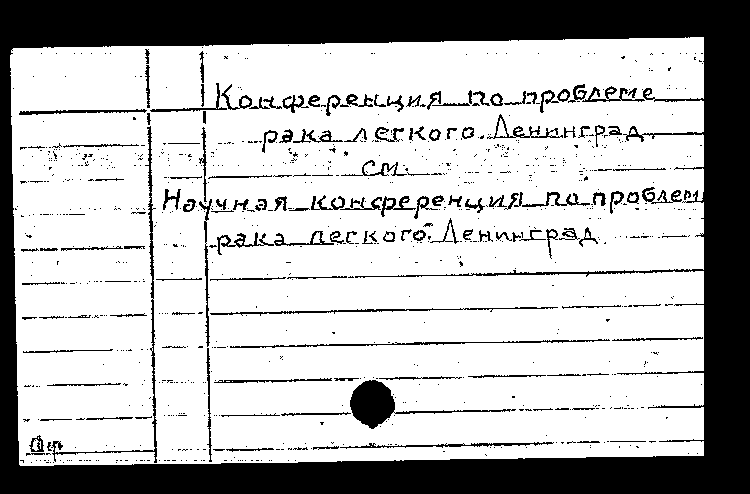 Конференция по проблеме
рака легкого. Ленинград.
см.
Научная конференция по проблем
рака легкого. Ленинград